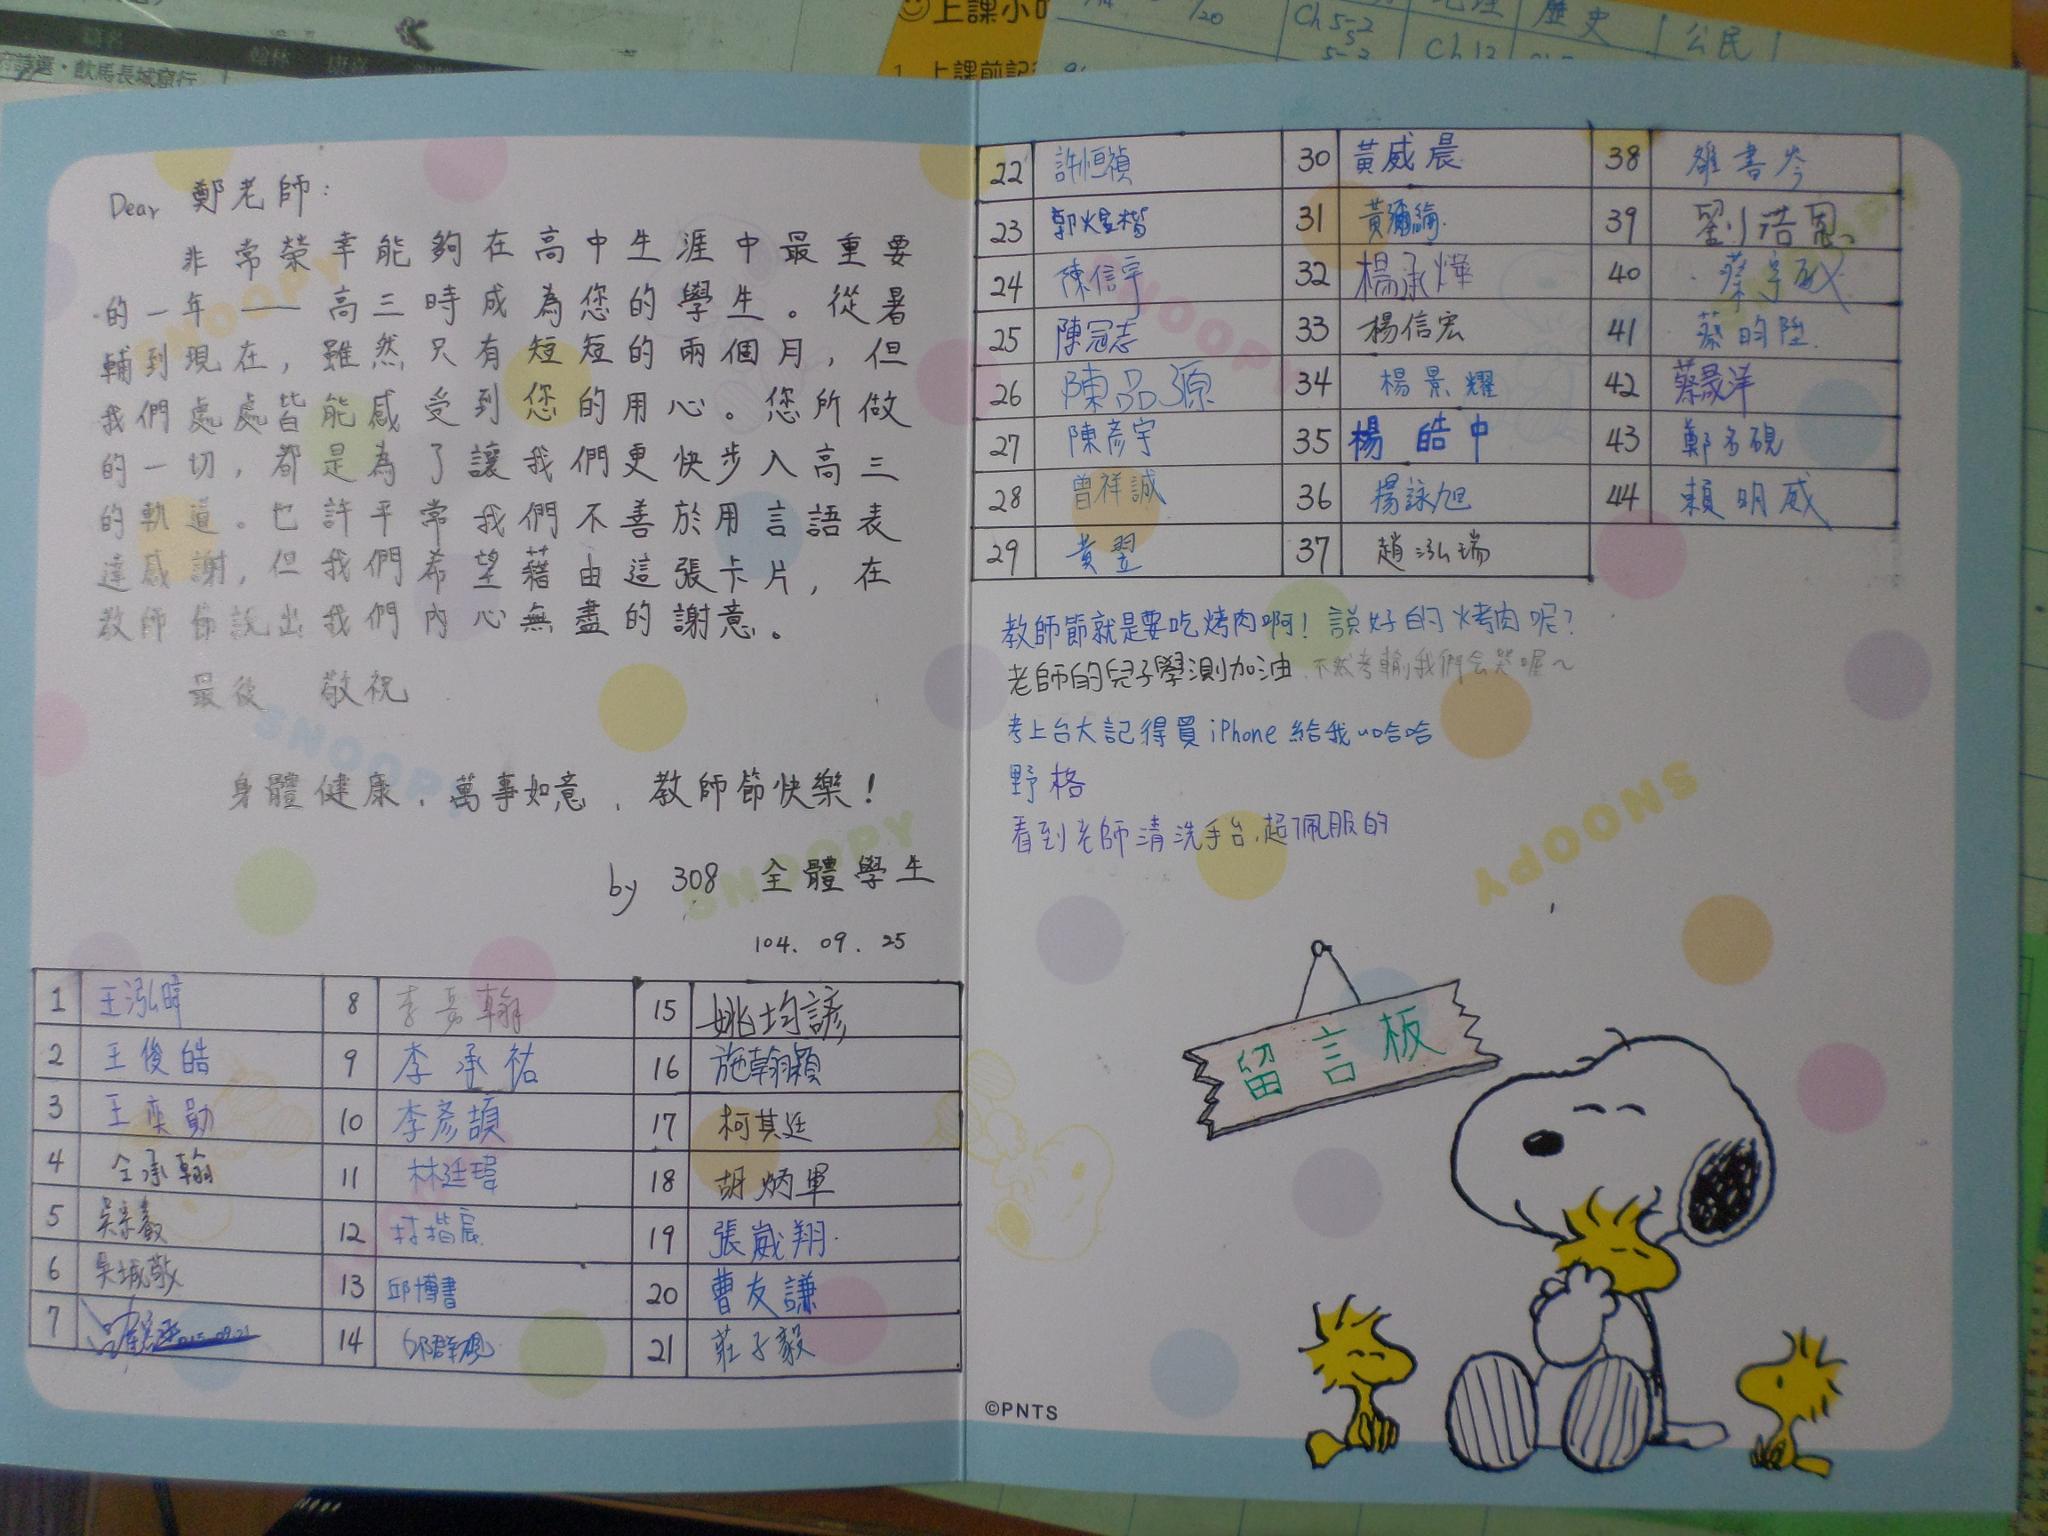 上課小
Ch 5-2
歷史
公民
翰林
飲馬長城窟行
上課前記
Ch 13
Dear 鄭老師：
非常榮幸能夠在高中生涯中最重要
的一年——高三時成為您的學生。從暑
輔到現在，雖然只有短短的兩個月，但
我們處處皆能感受到您的用心。您所做
的一切，都是為了讓我們更快步入高三
的軌道。也許平常我們不善於用言語表
達感謝，但我們希望藉由這張卡片，在
教師節說出我們內心無盡的謝意。
最後 敬祝
身體健康，萬事如意，教師節快樂！
by 308 全體學生
104. 09. 25
1 王泓暐 8 李嘉翰 15 姚均諺
2 王俊皓 9 李承祐 16 施翰穎
3 王奕勛 10 李彥頡 17 柯其廷
4 全承翰 11 林廷瑋 18 胡炳軍
5 12 林揩宸 19 張崴翔
6 吳城敬 13 邱博書 20 曹友謙
7 14 21 莊子毅
22 許恒禎 30 黃威晨 38 雒書岑
23 郭煌楷 31 黃彌綸 39 劉浩恩
24 陳信宇 32 楊承燁 40 蔡宇
25 陳冠志 33 楊信宏 41 蔡昀陞
26 陳品源 34 楊景耀 42 蔡晟洋
27 陳彥宇 35 楊皓中 43 鄭名硯
28 曾祥誠 36 楊詠旭 44 賴明威
29 黃翌 37 趙泓瑞
教師節就是要吃烤肉啊！說好的烤肉呢？
老師的兒子學測加油，不然考輸我們會哭喔～
考上台大記得買iPhone給我 哈哈
野格
看到老師清洗手台，超佩服的
SNOOPY
留言板
©PNTS